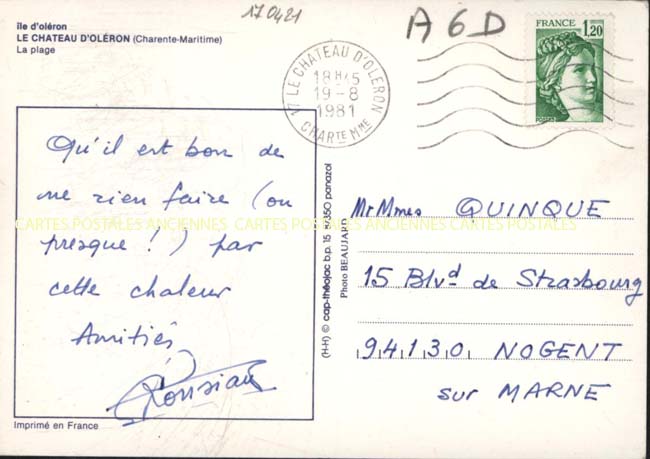 île d'oléron
LE CHATEAU D'OLÉRON (Charente-Maritime)
La plage
170421
A 6 D
FRANCE
1,20
17 LE CHATEAU D'OLERON
18H45
19-8
1981
CHARTE MME
Qu'il est bon de
ne rien faire (ou
presque !) par
cette chaleur
Amitiés
CARTES POSTALES ANCIENNES CARTES POSTALES ANCIENNES CARTES POSTALES
(H-H) © cap-théojac b.p. 15 87350 panazol
Photo BEAUJARD
Mr Mmes QUINQUE
15 Blvd de Strasbourg
94130 NOGENT
sur MARNE
Imprimé en France